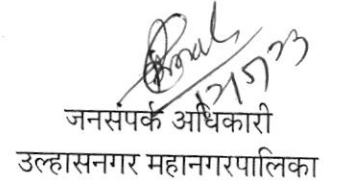 12/5/23
जनसंपर्क अधिकारी
उल्हासनगर महानगरपालिका